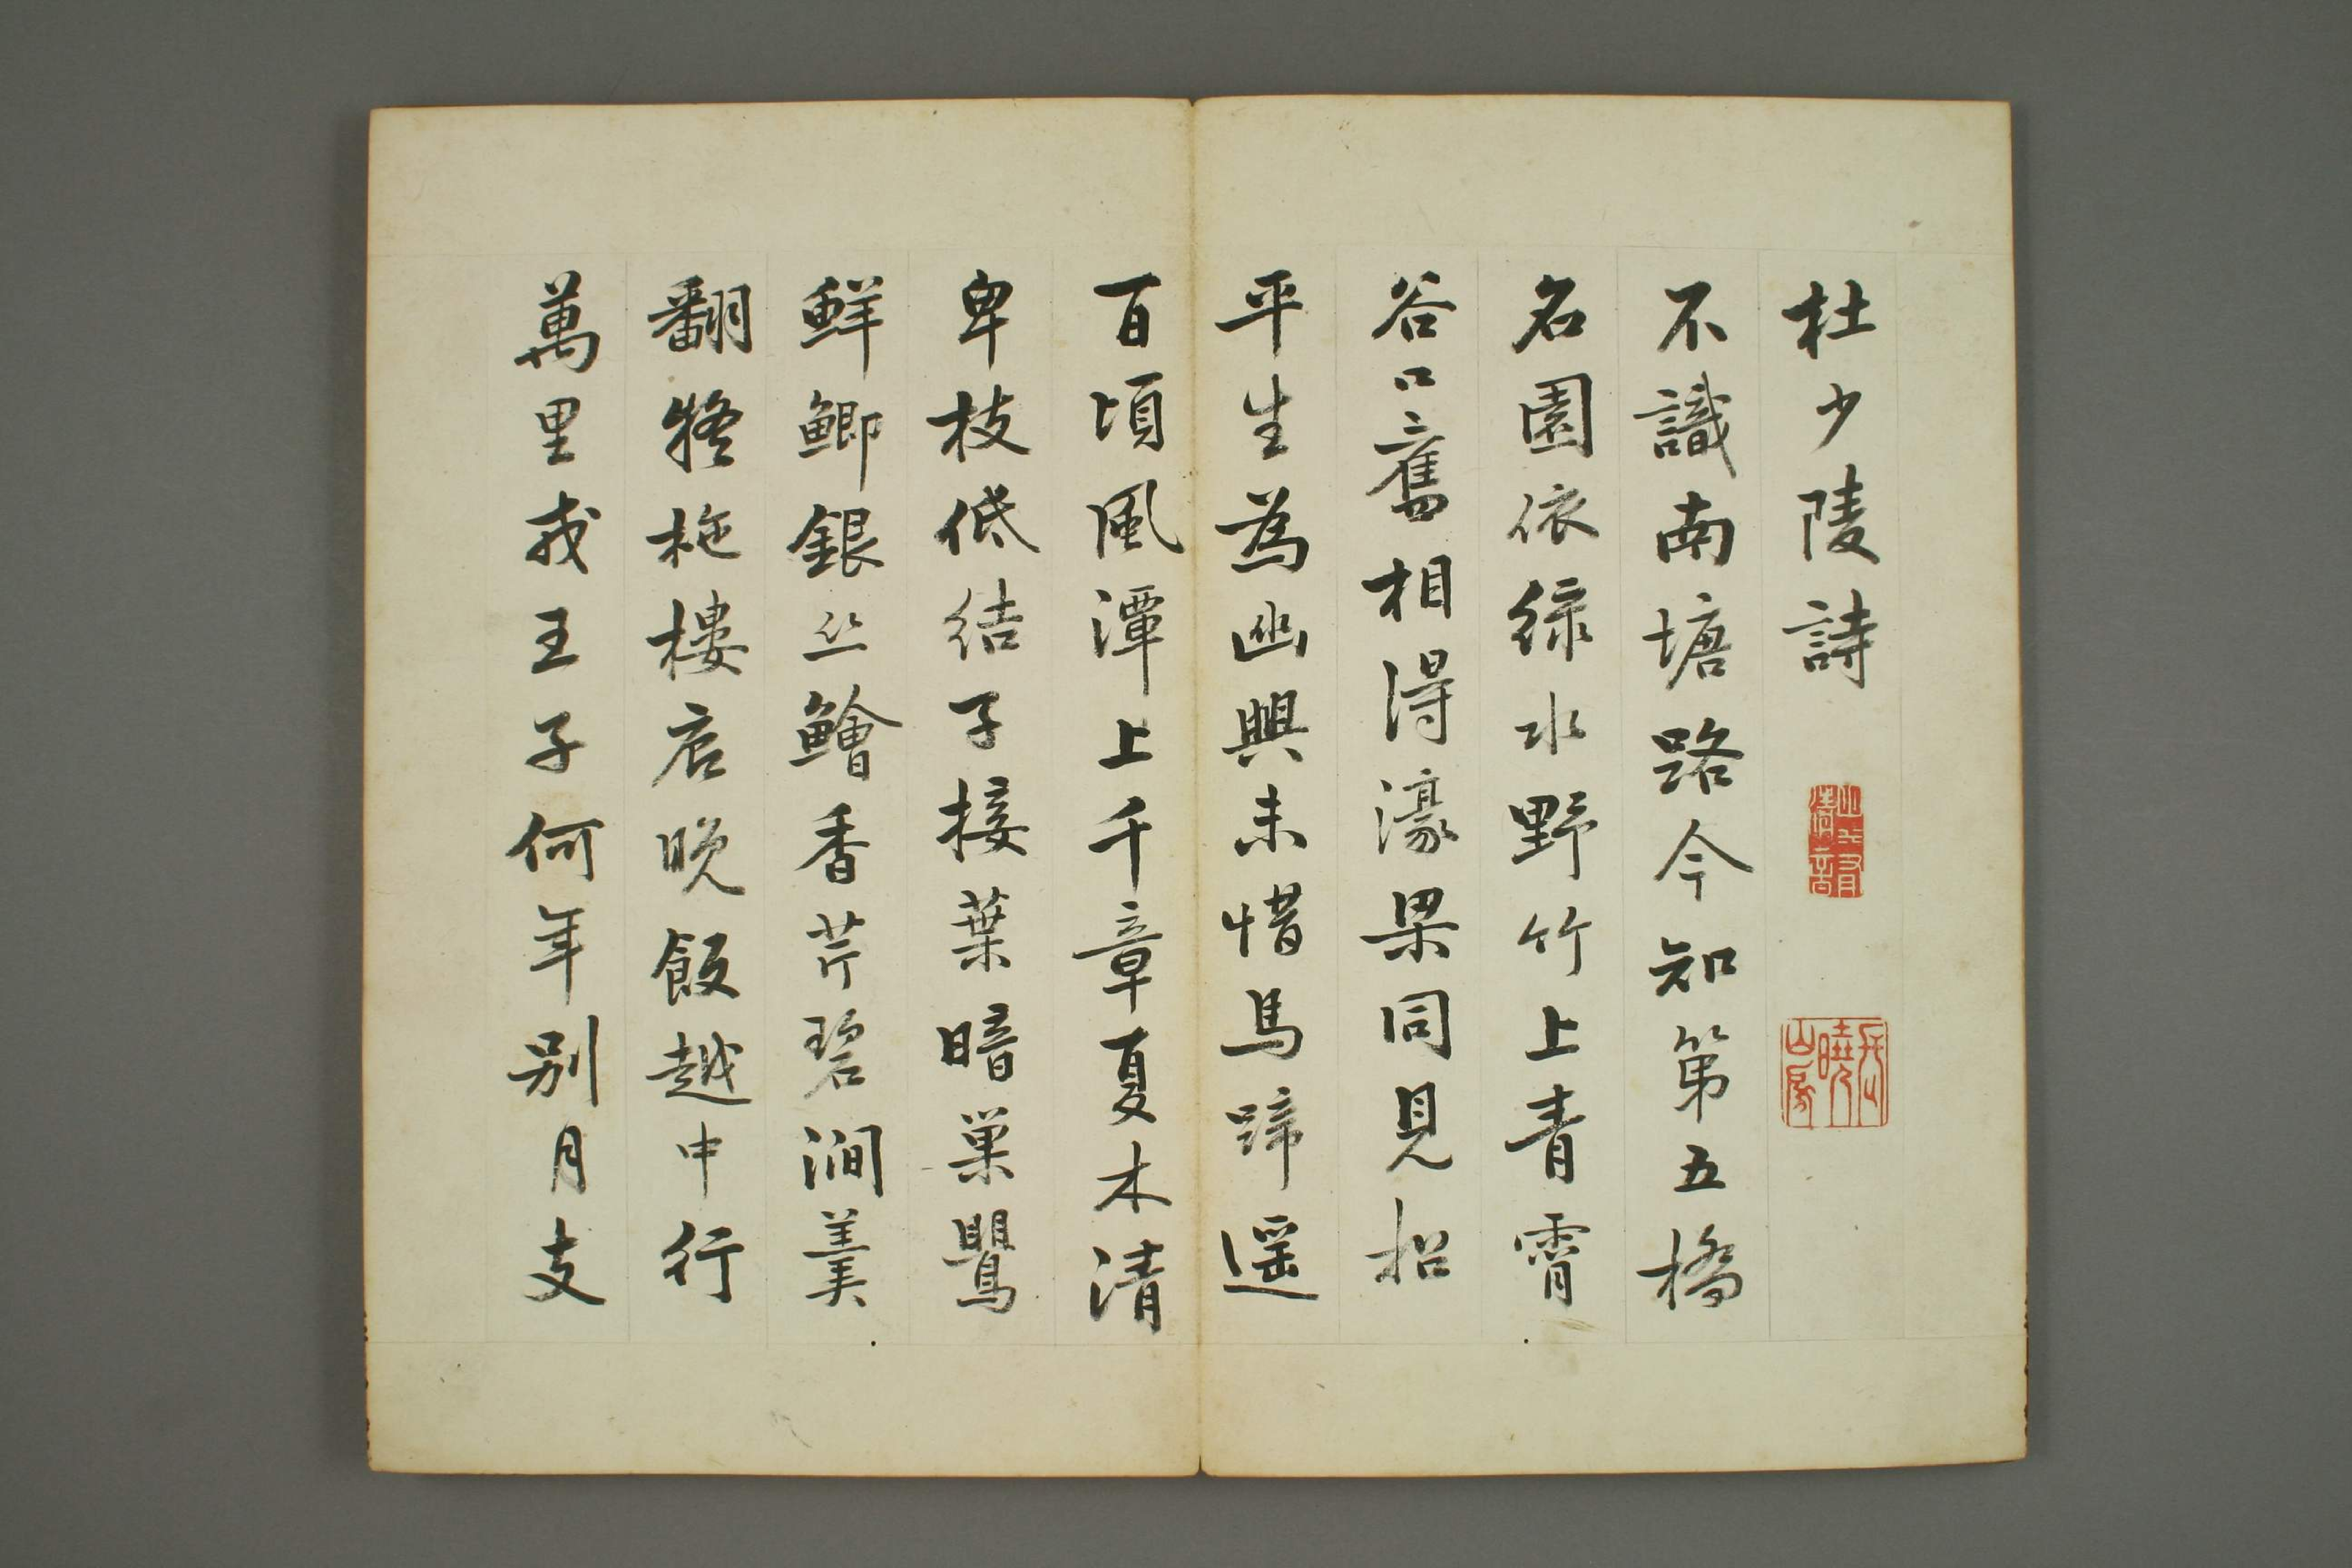 杜少陵詩
不識南塘路今知第五橋
名園依綠水野竹上青霄
谷口舊相得濠梁同見招
平生為幽興未惜馬蹄遥
百頃風潭上千章夏木清
卑枝低結子接葉暗巢鶯
鮮鯽銀絲鱠香芹碧澗羹
翻疑柂樓底晚飯越中行
萬里戎王子何年別月支